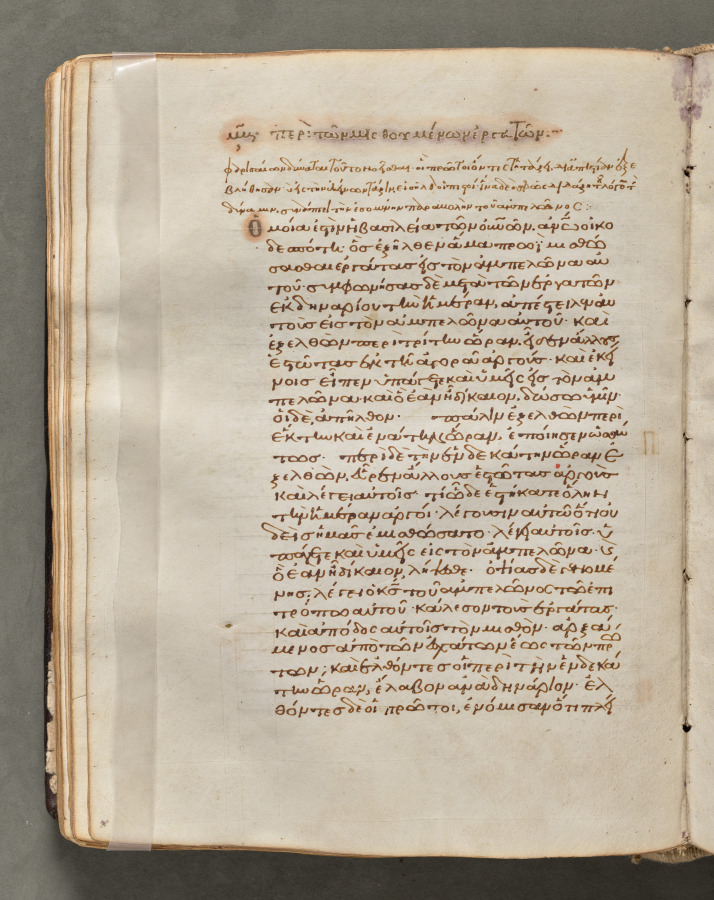 περὶ τῶν μισθουμένων ἐργατῶν
Ὁμοία ἐστὶν ἡ βασιλεία τῶν οὐνῶν, ἀνῶ οἰκο
δεσπότη· ὃς ἐξῆλθεν ἅμα πρωῒ μισθώ
σασθαι ἐργάτας εἰς τὸν ἀμπελῶνα αὐ
τοῦ· συμφωνήσας δὲ μετὰ τῶν ἐργατῶν
ἐκ δηναρίου τὴν ἡμέραν, ἀπέστειλεν αὐ
τοὺς εἰς τὸν ἀμπελῶνα αὐτοῦ· καὶ
ἐξελθὼν περὶ τρίτην ὥραν, εἶδεν ἄλλους
ἑστῶτας ἐν τῇ ἀγορᾷ ἀργούς· καὶ ἐκεί
νοις εἶπεν· ὑπάγετε καὶ ὑμεῖς εἰς τὸν ἀμ
πελῶνα· καὶ ὃ ἐὰν ἦ δίκαιον, δώσω ὑμῖν·
οἱ δὲ, ἀπῆλθον· πάλιν ἐξελθὼν περὶ
ἕκτην καὶ ἐνάτην ὥραν, ἐποίησεν ὡσαύ
τως· περὶ δὲ τὴν ἑνδεκάτην ὥραν ἐ
ξελθὼν, εὗρεν ἄλλους ἑστῶτας ἀργοὺς
καὶ λέγει αὐτοῖς· τί ὧδε ἑστήκατε ὅλην
τὴν ἡμέραν ἀργοί· λέγουσιν αὐτῶ ὅτι οὐ
δεὶς ἡμᾶς ἐμισθώσατο· λέγει αὐτοῖς· ὑ
πάγετε καὶ ὑμεῖς εἰς τὸν ἀμπελῶνα· καὶ
ὃ ἐὰν ἦ δίκαιον, λήψεσθε· ὀψίας δὲ γενομέ
νης, λέγει ὁ κς τοῦ ἀμπελῶνος τῶ ἐπι
τρόπω αὐτοῦ· κάλεσον τοὺς ἐργάτας·
καὶ ἀπόδος αὐτοῖς τὸν μισθὸν· ἀρξά
μενος ἀπὸ τῶν ἐσχάτων ἕως τῶν πρώ
των; καὶ ἐλθόντες οἱ περὶ τὴν ἑνδεκά
την ὥραν, ἔλαβον ἀνὰ δηνάριον· ἐλ
θόντες δὲ οἱ πρῶτοι, ἐνόμισαν ὅτι πλεί